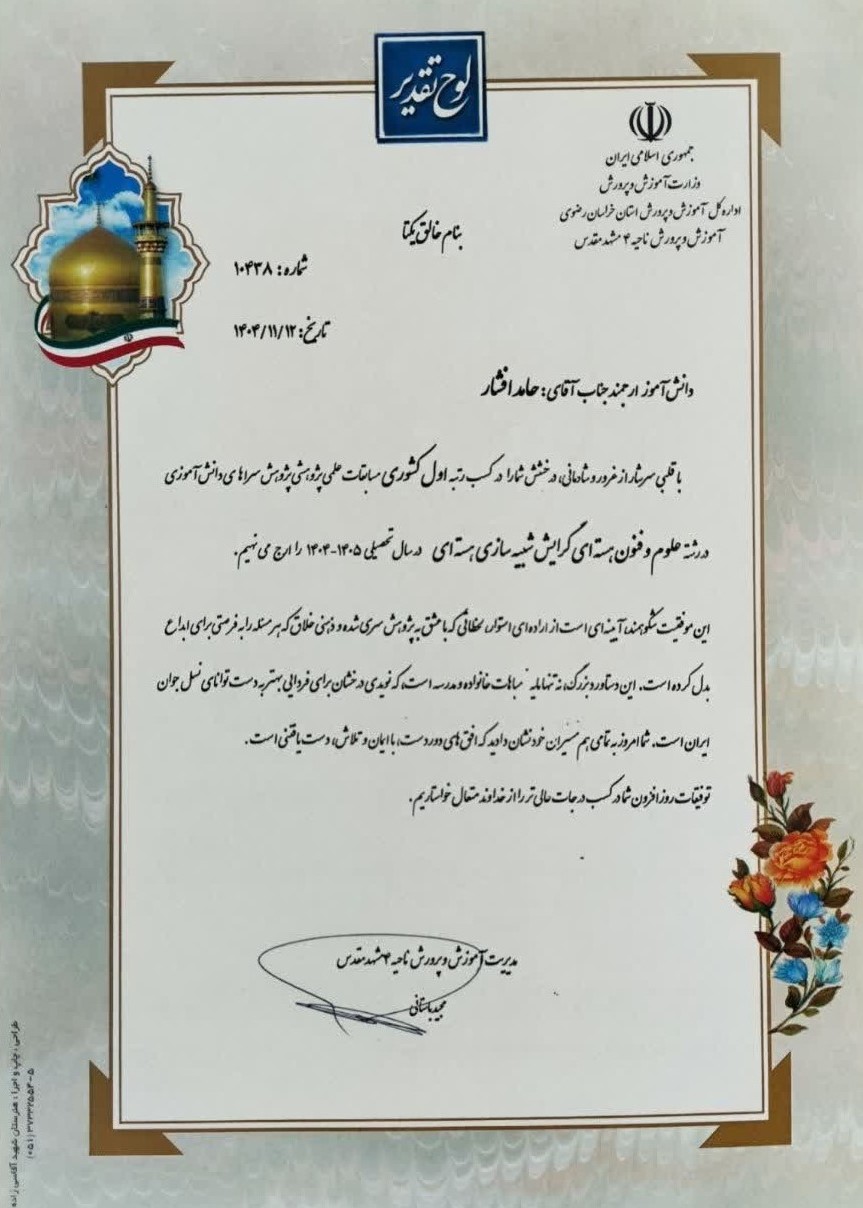 لوح تقدیر
جمهوری اسلامی ایران
وزارت آموزش و پرورش
اداره کل آموزش و پرورش استان خراسان رضوی
آموزش و پرورش ناحیه ۴ مشهد مقدس
بنام خالق یکتا
شماره: ۱۰۴۳۸
تاریخ: ۱۴۰۴/۱۱/۱۲
دانش آموز ارجمند جناب آقای: حامد افشار
با قلبی سرشار از غرور و شادمانی، درخشش شما را در کسب رتبه اول کشوری مسابقات علمی پژوهشی پژوهش سراهای دانش آموزی
در رشته علوم و فنون هسته ای گرایش شبیه سازی هسته ای در سال تحصیلی ۱۴۰۵-۱۴۰۴ را ارج می نهیم.
این موفقیت شکوهمند، آیینه ای است از اراده ای استوار، لحظاتی که با عشق به پژوهش سپری شده و ذهنی خلاق که هر مسئله را به فرصتی برای ابداع
بدل کرده است. این دستاورد بزرگ، نه تنها مایه مباهات خانواده و مدرسه است، که نویدی درخشان برای فردایی بهتر به دست توانای نسل جوان
ایران است. شما امروز به تمامی هم مسیران خود نشان دادید که افق های دوردست، با ایمان و تلاش، دست یافتنی است.
توفیقات روز افزون شما در کسب درجات عالی تر را از خداوند متعال خواستاریم.
مدیریت آموزش و پرورش ناحیه ۴ مشهد مقدس
مجید باستانی
طراحی، چاپ و اجرا: هنرستان شهید آقاسی زاده
(۰۵۱) ۳۷۳۲۲۵۵۴-۵